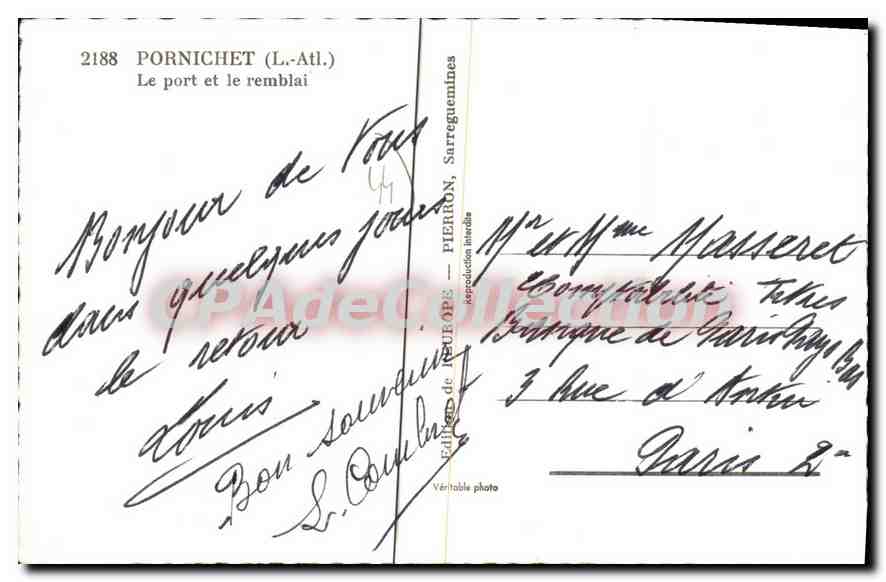 2188 PORNICHET (L.-Atl.)
Le port et le remblai
Bonjour de Vous
dans quelques jours
le retour
Louis
Bon souvenir
L.
Edition de l'EUROPE — PIERRON, Sarreguemines
Reproduction interdite
Véritable photo
Mr et Mme Masseret
Comptabilité Titres
Banque de Paris Pays Bas
3 Rue d'Antin
Paris 2e
CPAdeCollection